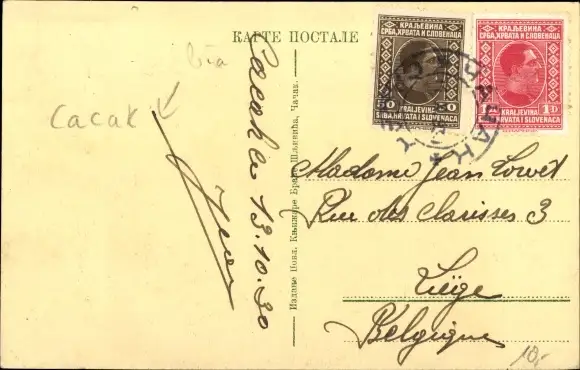 КАРТЕ ПОСТАЛЕ
via
Cacak
Cacak le 13.10.30
Издање Нова. Књижаре Браће Шљивића, Чачак.
КРАЉЕВИНА
СРБА, ХРВАТА И СЛОВЕНАЦА
50 50
KRALJEVINA
SRBA, HRVATA I SLOVENACA
КРАЉЕВИНА
СРБА, ХРВАТА И СЛОВЕНАЦА
1D 1D
KRALJEVINA
SRBA, HRVATA I SLOVENACA
Madame Jean
Rue des Clarisses 3
Liége
Belgique
10,-